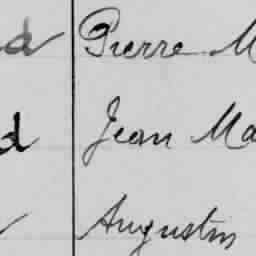 d Pierre M
d Jean Ma
Augustin